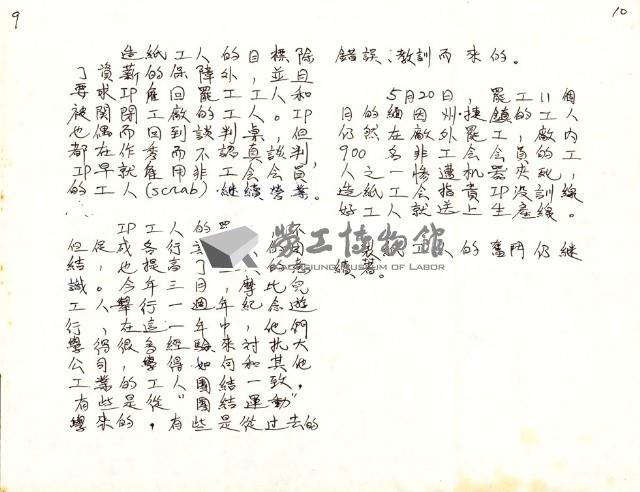 9
造紙工人的目標除
了資薪的保障外，並且
要求IP雇回罷工工人和
被関閉工廠的工人。IP
也偶而回到談判桌，但
都在作秀而不認真談判，
IP早就雇用非工会会員，
的工人(scrab)継續営業。
IP工人的罷
不
但促成各行
団
結，也提高了
的意
識。今年三月，摩比兒
工人舉行一週年紀念遊
行，在這一年中，他們
學得很多経驗來対抗大
公司，學得如何和其他
工業的工人團結一致，
有些是從"團結運動"
學來的，有些是從过去的
10
錯誤、教訓而來的。
5月20日，罷工11個
月的緬因州·捷鎮的工人
仍然在廠外罷工，廠内
900名非工会会員的工
人之一惨遭机器夾死，
造紙工会指責IP没訓練
好工人就送上生產線。
製紙工人的奮鬥仍継
續著。
勞工博物館
KAOHSIUNG MUSEUM OF LABOR